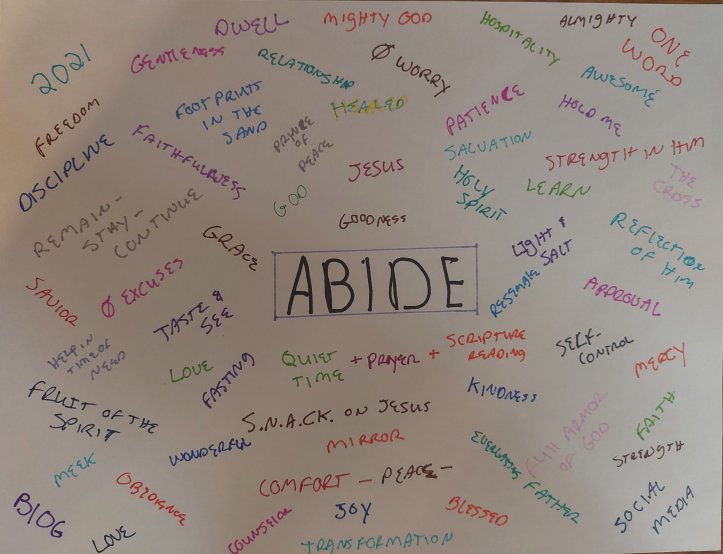 DWELL
MIGHTY GOD
HOSPITALITY
ALMIGHTY
ONE
WORD
2021
GENTLENESS
RELATIONSHIP
Ø WORRY
AWESOME
FREEDOM
FOOTPRINTS
IN THE
SAND
HEALED
PATIENCE
HOLD ME
DISCIPLINE
FAITHFULNESS
PRINCE
OF
PEACE
JESUS
SALVATION
STRENGTH IN HIM
THE
CROSS
REMAIN -
STAY -
CONTINUE
GOD
HOLY
SPIRIT
LEARN
GRACE
GOODNESS
LIGHT &
SALT
REFLECTION
OF HIM
SAVIOR
Ø EXCUSES
TASTE &
SEE
ABIDE
RESEMBLE
APPROVAL
HELP IN
TIME OF
NEED
LOVE
FASTING
QUIET
TIME
+ PRAYER +
SCRIPTURE
READING
SELF-
CONTROL
MERCY
FRUIT OF THE
SPIRIT
S.N.A.C.K. ON JESUS
KINDNESS
FAITH
MEEK
WONDERFUL
MIRROR
EVERLASTING FATHER
FULL ARMOR
OF GOD
STRENGTH
BLOG
OBEDIENCE
COMFORT - PEACE -
SOCIAL
MEDIA
LOVE
COUNSELOR
JOY
BLESSED
TRANSFORMATION